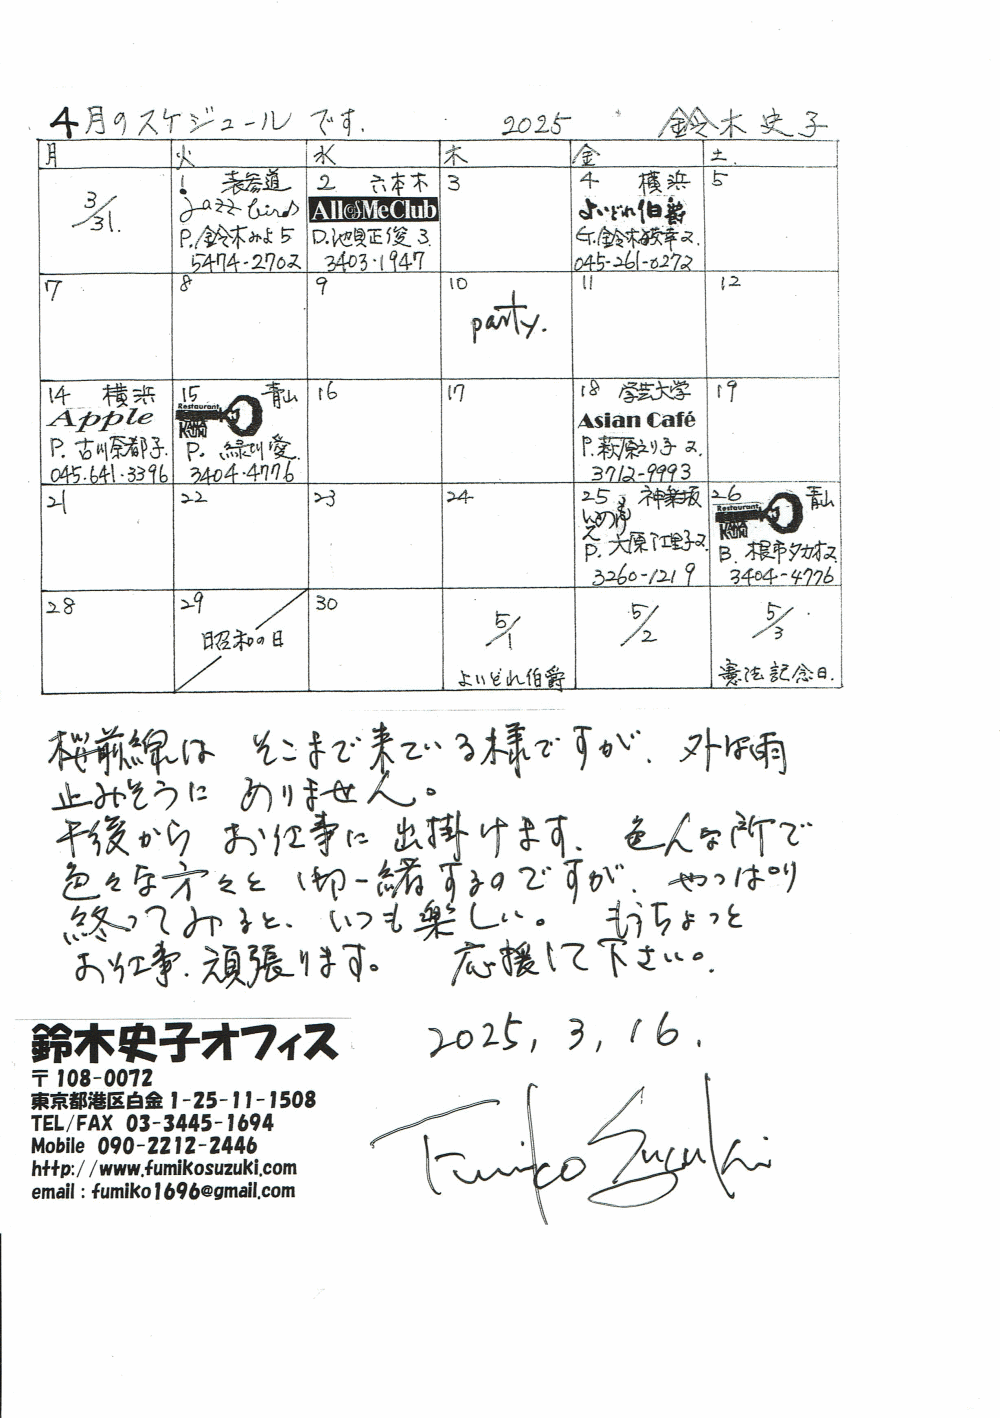 4月のスケジュール です. 2025 鈴木史子
月 火 水 木 金 土.
3/31.
1 表参道
jazz bird
P. 鈴木みよ 5
5474-2702
2 六本木
All of Me Club
D. 池貝正俊 3.
3403・1947
3
4 横浜
よいどれ伯爵
G. 鈴木
045-261-0272
5
7
8
9
10
party.
11
12
14 横浜
Apple
P. 古川奈都子.
045.641・3396
15 青山
Restaurant
P. 緑川愛.
3404・4776
16
17
18 学芸大学
Asian Café
P. 萩原えり子 ス.
3712-9993
19
21
22
23
24
25 神楽坂
P. 大原江里子ス.
3260-1219
26 青山
Restaurant
B. 根市タカオス.
3404-4776
28
29
昭和の日
30
5/1
よいどれ伯爵
5/2
5/3
憲法記念日.
桜前線は そこまで来ている様ですが、外は雨
止みそうに ありません。
午後から お仕事に 出掛けます. 色んな所で
色々な方々と 御一緒するのですが、やっぱり
終ってみると、いつも楽しい。 もうちょっと
お仕事、頑張ります。 応援して下さい。
2025, 3, 16.
Fumiko Suzuki
鈴木史子オフィス
〒108-0072
東京都港区白金 1-25-11-1508
TEL/FAX 03-3445-1694
Mobile 090-2212-2446
http://www.fumikosuzuki.com
email : fumiko1696@gmail.com